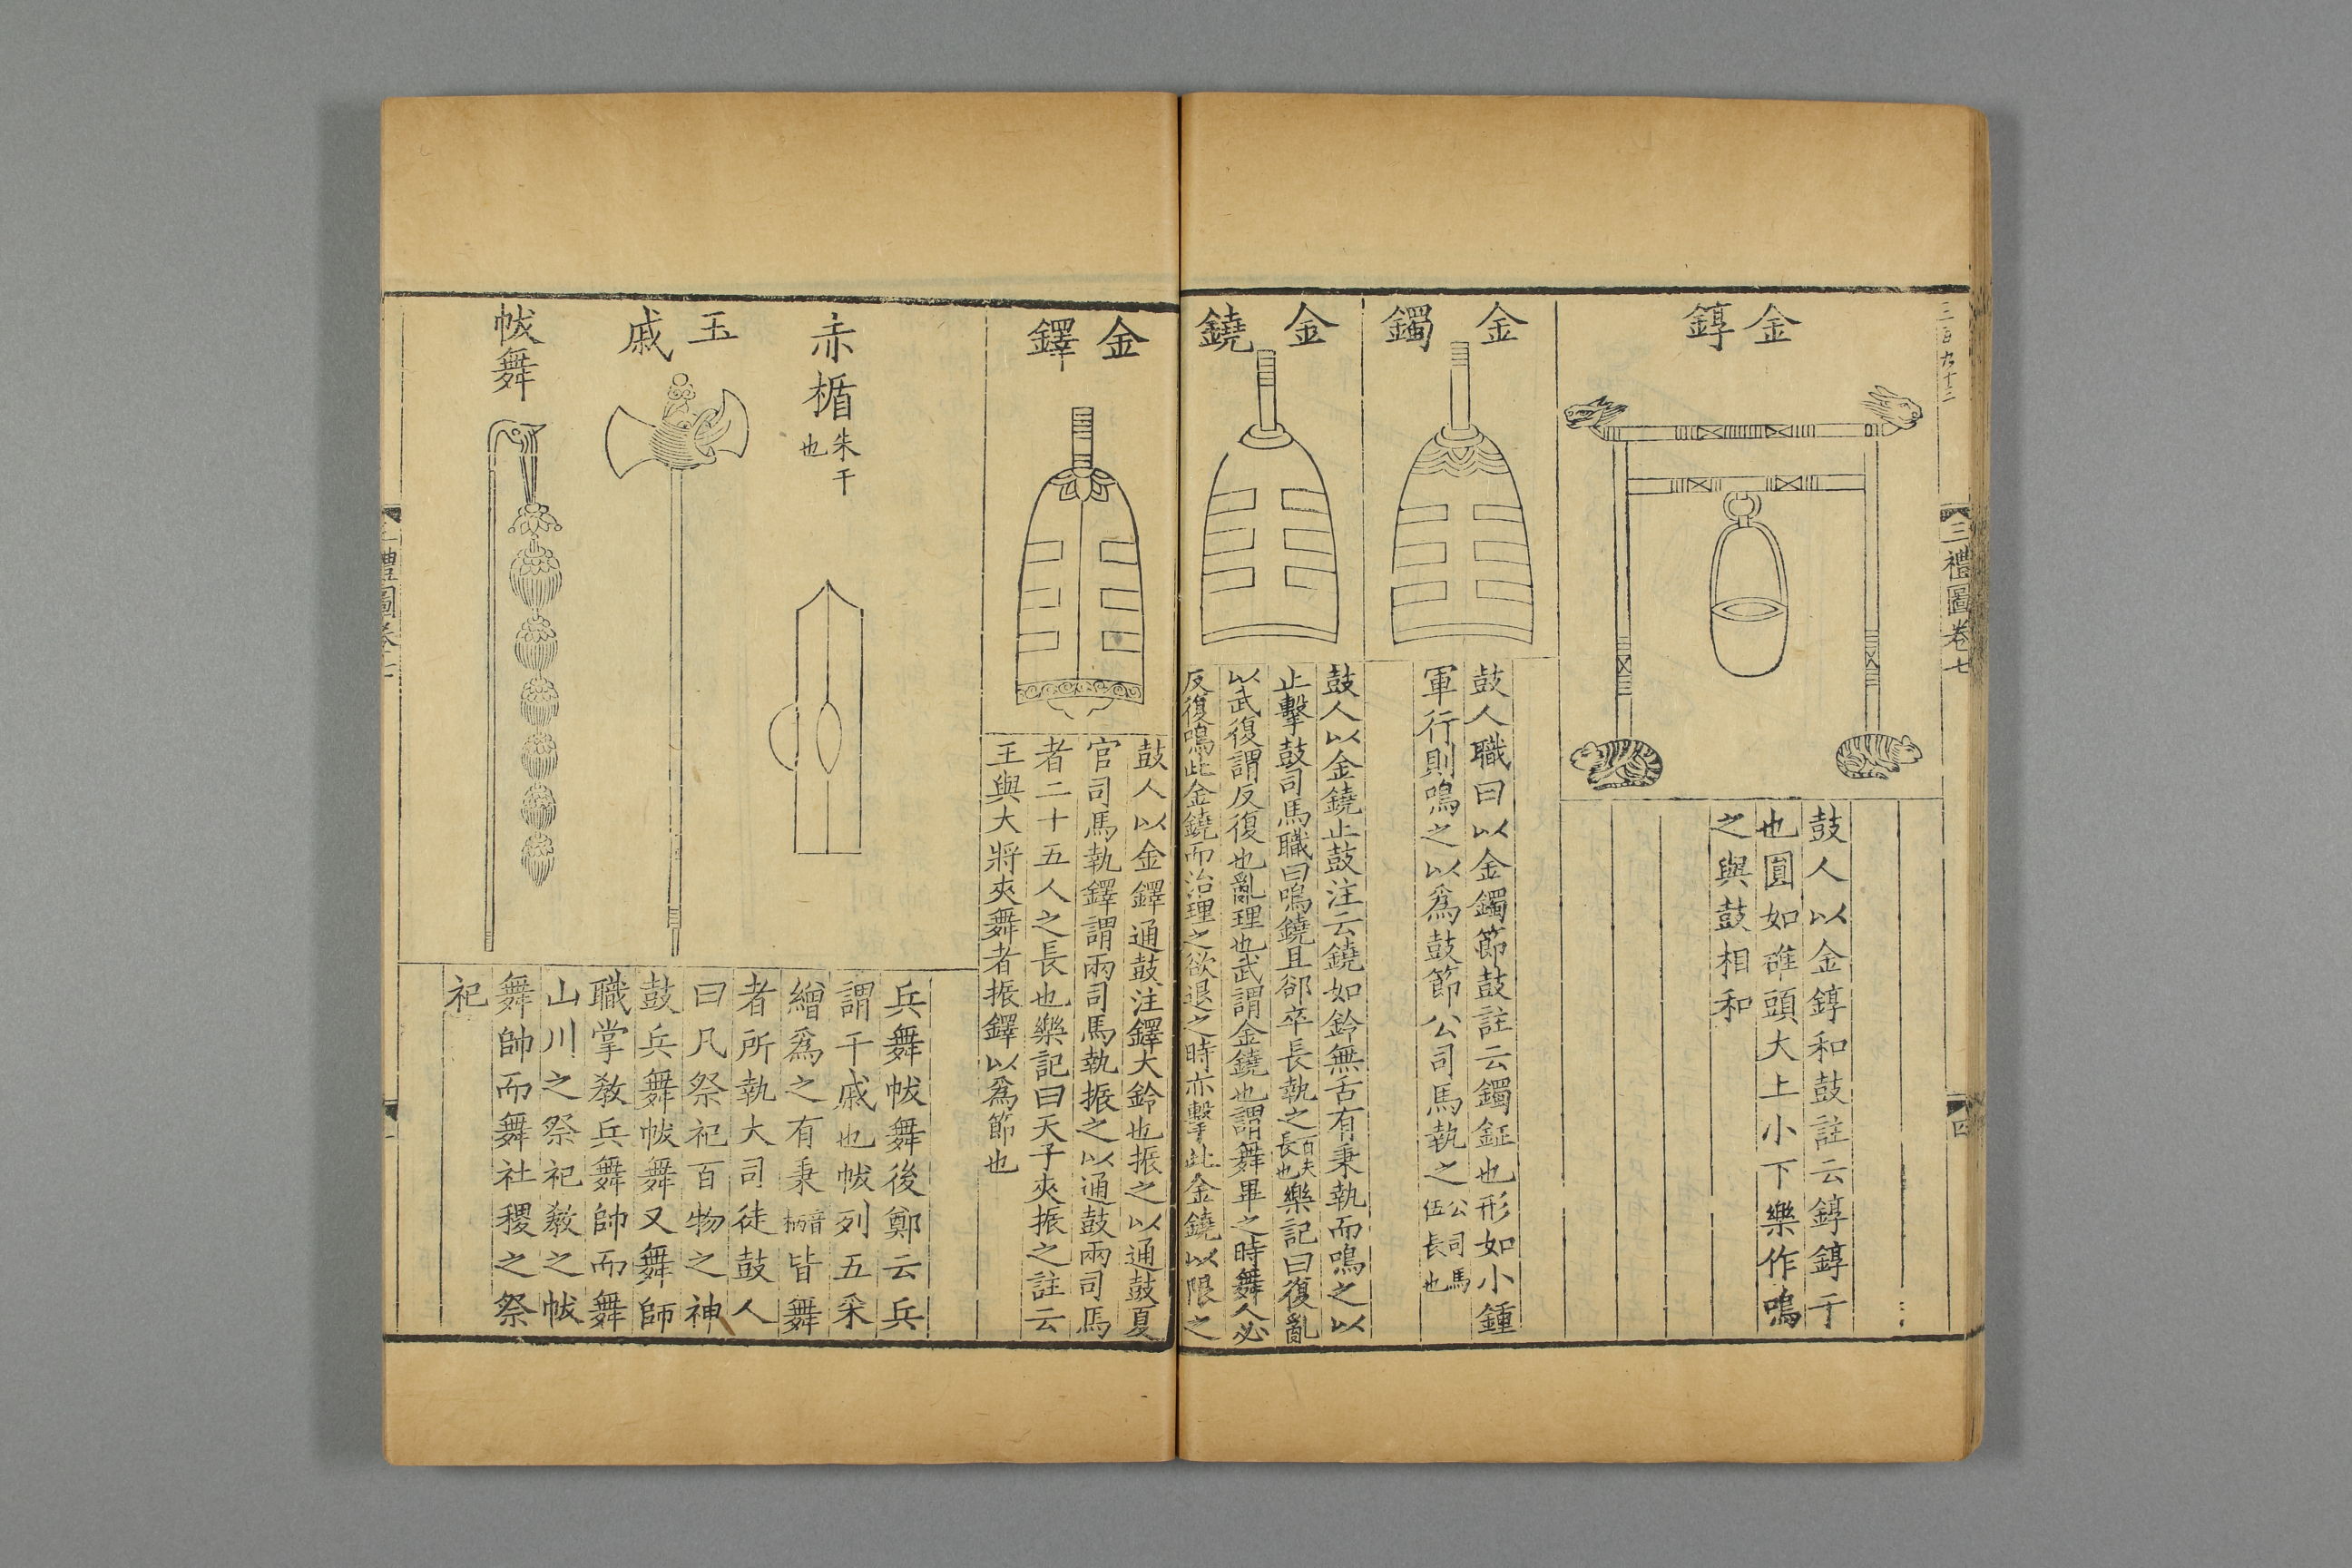 三禮圖卷七
四
金錞
鼓人以金錞和鼓註云錞錞于
也圓如碓頭大上小下樂作鳴
之與鼓相和
金鐲
鼓人職曰以金鐲節鼓註云鐲鉦也形如小鍾
軍行則鳴之以為鼓節公司馬執之公司馬
伍長也
金鐃
鼓人以金鐃止鼓注云鐃如鈴無舌有秉執而鳴之以
止擊鼓司馬職曰鳴鐃且郤卒長執之百夫
長也樂記曰復亂
以武復謂反復也亂理也武謂金鐃也謂舞畢之時舞人必
反復鳴此金鐃而治理之欲退之時亦擊此金鐃以限之
金鐸
鼓人以金鐸通鼓注鐸大鈴也振之以通鼓夏
官司馬執鐸謂兩司馬執振之以通鼓兩司馬
者二十五人之長也樂記曰天子夾振之註云
王與大將夾舞者振鐸以為節也
赤楯朱干
也
玉戚
帗舞
兵舞帗舞後鄭云兵
謂干戚也帗列五采
繒為之有秉音
柄皆舞
者所執大司徒鼓人
曰凡祭祀百物之神
鼓兵舞帗舞又舞師
職掌教兵舞帥而舞
山川之祭祀教之帗
舞帥而舞社稷之祭
祀